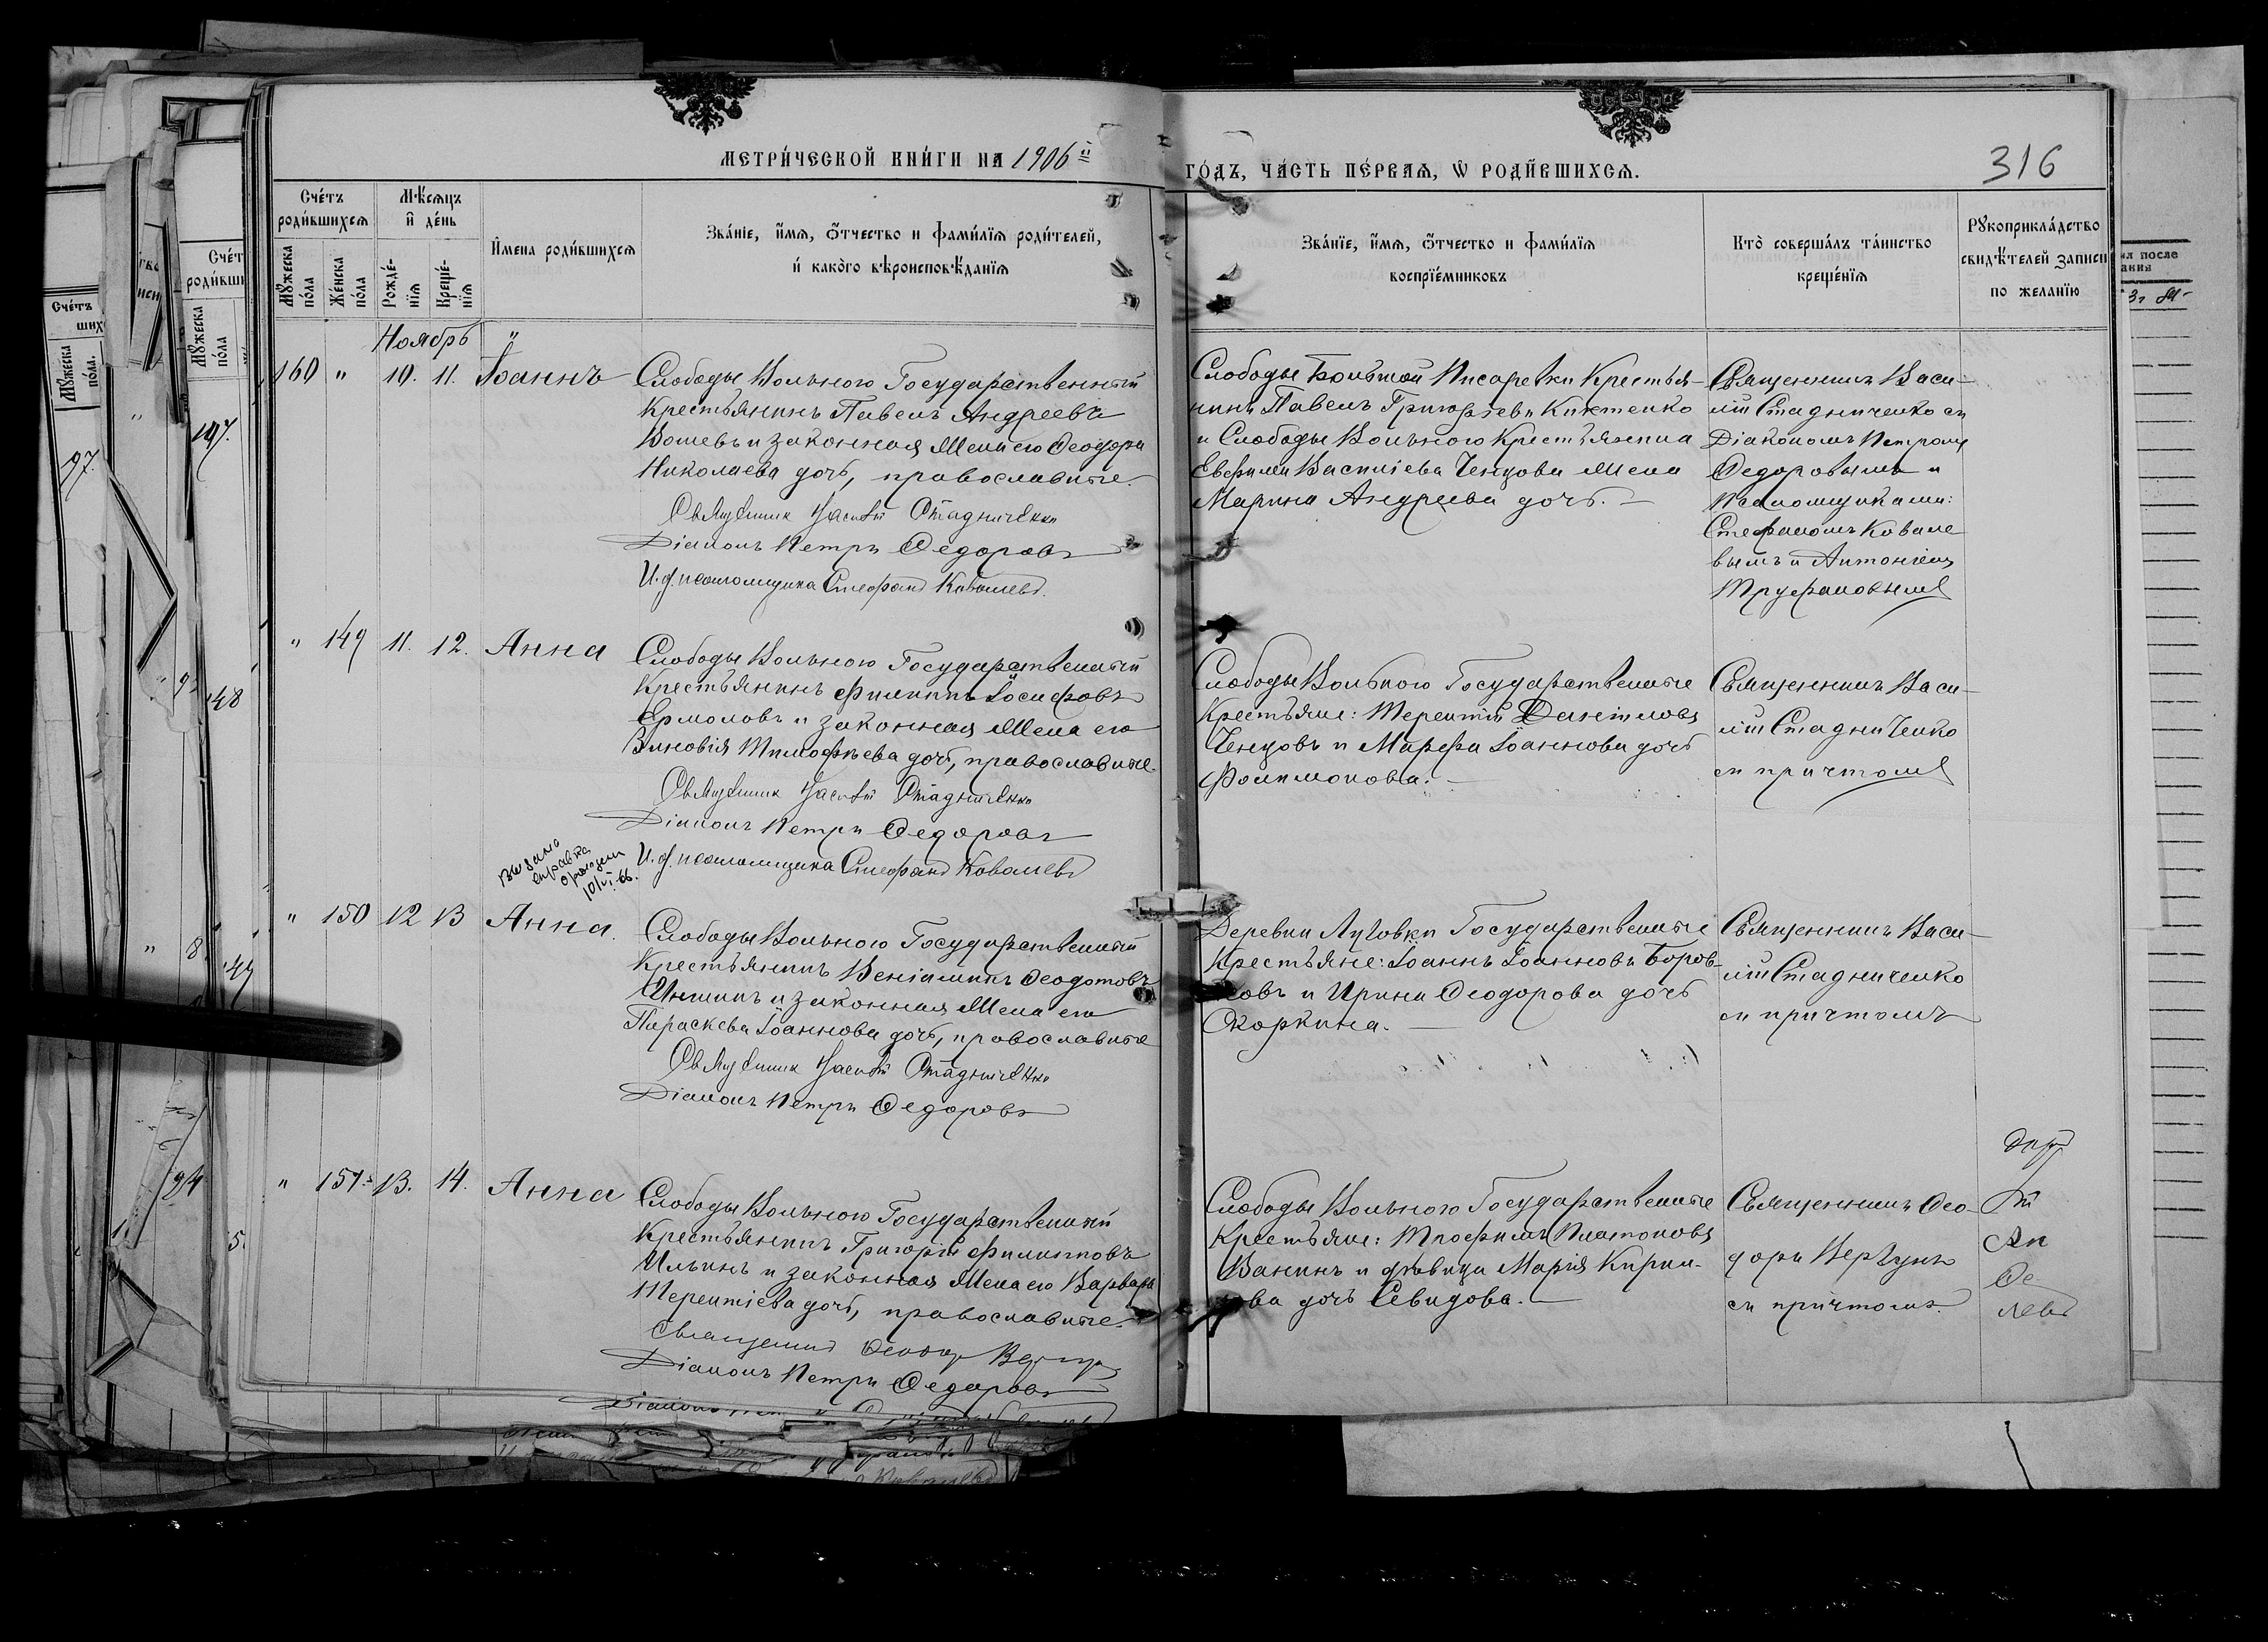 МЕТРИ́ЧЕСКОЙ КНИ́ГИ НА 1906 й
ГО́ДЪ, ЧА́СТЬ ПЕ́РВАЯ, Ѡ РОДИ́ВШИХСЯ.
316
Сче́тъ
роди́вшихся
Мѣ́сяцъ
и де́нь
Имена роди́вшихся
Зва́нїе, и́мя, ѻ́тчество и фами́лїя роди́телей,
и́ како́го вѣроисповѣ́данїя
Зва́нїе, и́мя, ѻ́тчество и фами́лїя
воспрїе́мниковъ
Кто̀ соверша́лъ та́инство
креще́нїя
Рꙋкоприкла́дство
свидѣ́телей записи
по жела́нїю
Мꙋ́жеска
по́ла
Же́нска
по́ла
Рожде́-
нїя
Креще́-
нїя
Ноябрь
160 " 10. 11. Іоаннъ
Слободы Вольного Государственный
Крестьянинъ Павелъ Андреевъ
и законная жена его Ѳеодора
Николаева дочь, православные.
Священник Василій Стадниченко
Діаконъ Петръ Ѳедоровъ
И. д. псаломщика Стефанъ Ковалевъ.
Слободы Большой Писаревки Крестья-
нинъ Павелъ Григорьевъ
и Слободы Вольного Крестьянина
Евфимія Василіева Ченцова жена
Марина Андреева дочь.
Священникъ Васи-
лій Стадниченко съ
Діакономъ Петромъ
Ѳедоровымъ и
Псаломщиками:
Стефаномъ Ковале
вымъ и Антоніемъ
Труфановымъ
" 149 11. 12. Анна
Слободы Вольного Государственный
Крестьянинъ Филиппъ Іосифовъ
Ермоловъ и законная жена его
Зиновія Тимофѣева дочь, православные.
Священник Василій Стадниченко
Діаконъ Петръ Ѳедоровъ
И. д. псаломщика Стефанъ Ковалевъ
Слободы Вольного Государственные
Крестьяне: Терентій Даніиловъ
Ченцовъ и Марфа Іоаннова дочь
Филимонова.
Священникъ Васи-
лій Стадниченко
съ причтомъ
Выдана
справка
10/VI.66.
" 150 12 13 Анна.
Слободы Вольного Государственный
Крестьянинъ Веніаминъ Ѳеодотовъ
и законная жена его
Параскева Іоаннова дочь, православные
Священник Василій Стадниченко
Діаконъ Петръ Ѳедоровъ
Деревни Луговки Государственные
Крестьяне: Іоаннъ Іоанновъ Боров-
ковъ и Ирина Ѳеодорова дочь
Скоркина.
Священникъ Васи-
лій Стадниченко
съ причтомъ
" 151 13. 14. Анна
Слободы Вольного Государственный
Крестьянинъ Григорій Филипповъ
Ильинъ и законная жена его Варвара
Терентіева дочь, православные.
Священникъ Ѳеодоръ
Діаконъ Петръ Ѳедоровъ
Слободы Вольного Государственные
Крестьяне: Трофимъ Платоновъ
Ванинъ и дѣвица Марія Кирил-
ова дочь Севидова.
Священникъ Ѳео-
доръ Вергунъ
съ причтомъ.